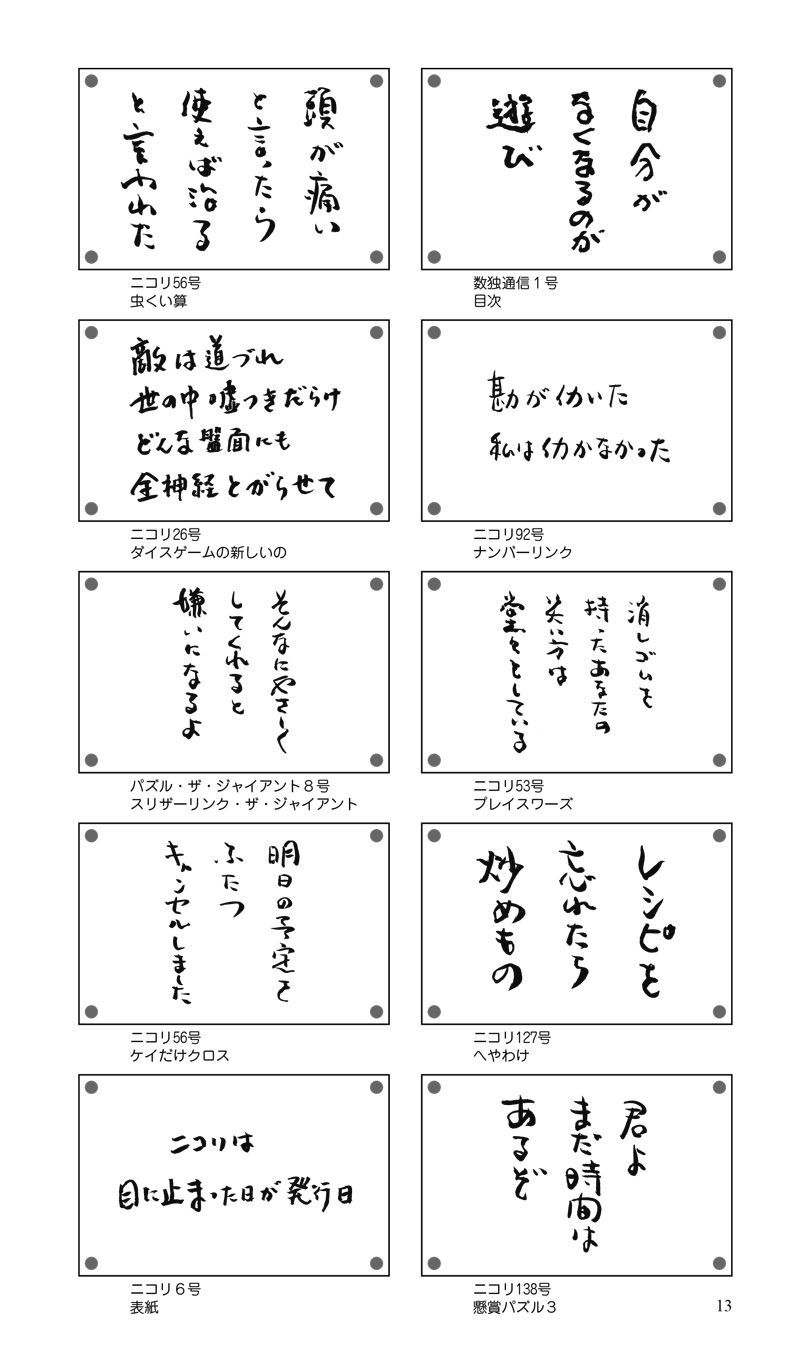 頭が痛い
と言ったら
使えば治る
と言われた
ニコリ56号
虫くい算
自分が
なくなるのが
遊び
数独通信1号
目次
敵は道づれ
世の中嘘つきだらけ
どんな盤面にも
全神経とがらせて
ニコリ26号
ダイスゲームの新しいの
勘が仂いた
私は仂かなかった
ニコリ92号
ナンバーリンク
そんなにやさしく
してくれると
嫌いになるよ
パズル・ザ・ジャイアント8号
スリザーリンク・ザ・ジャイアント
消しゴムを
持ったあなたの
笑い方は
堂々としている
ニコリ53号
プレイスワーズ
明日の予定を
ふたつ
キャンセルしました
ニコリ56号
ケイだけクロス
レシピを
忘れたら
炒めもの
ニコリ127号
へやわけ
ニコリは
目に止まった日が発行日
ニコリ6号
表紙
君よ
まだ時間は
あるぞ
ニコリ138号
懸賞パズル3
13